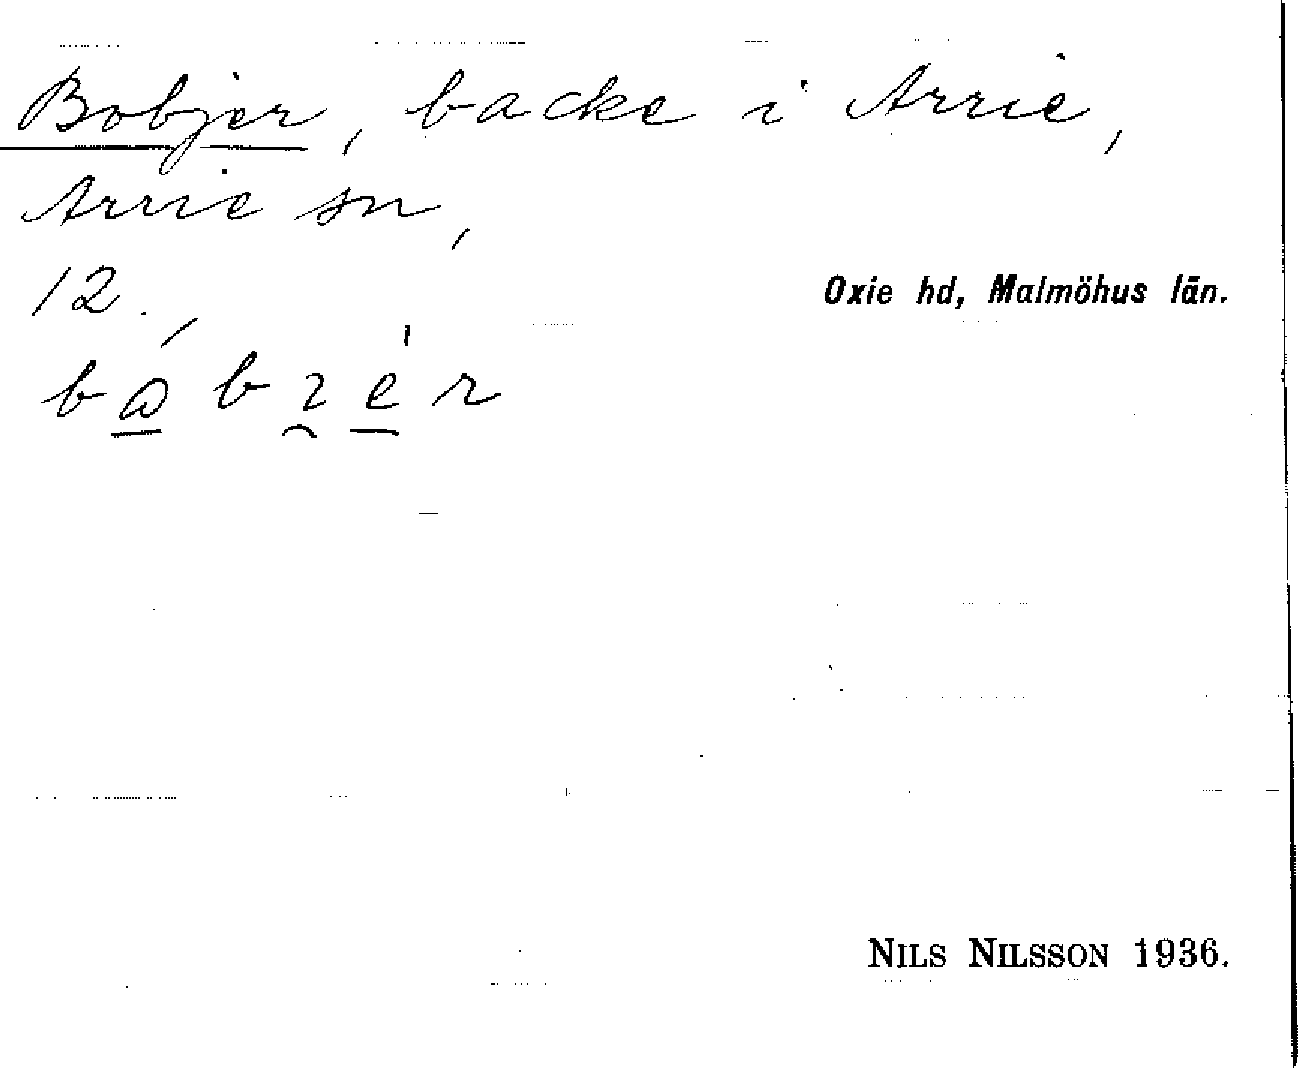 Bobjer, backe i Arrie,
Arrie sn,
12.
Oxie hd, Malmöhus län.
NILS NILSSON 1936.